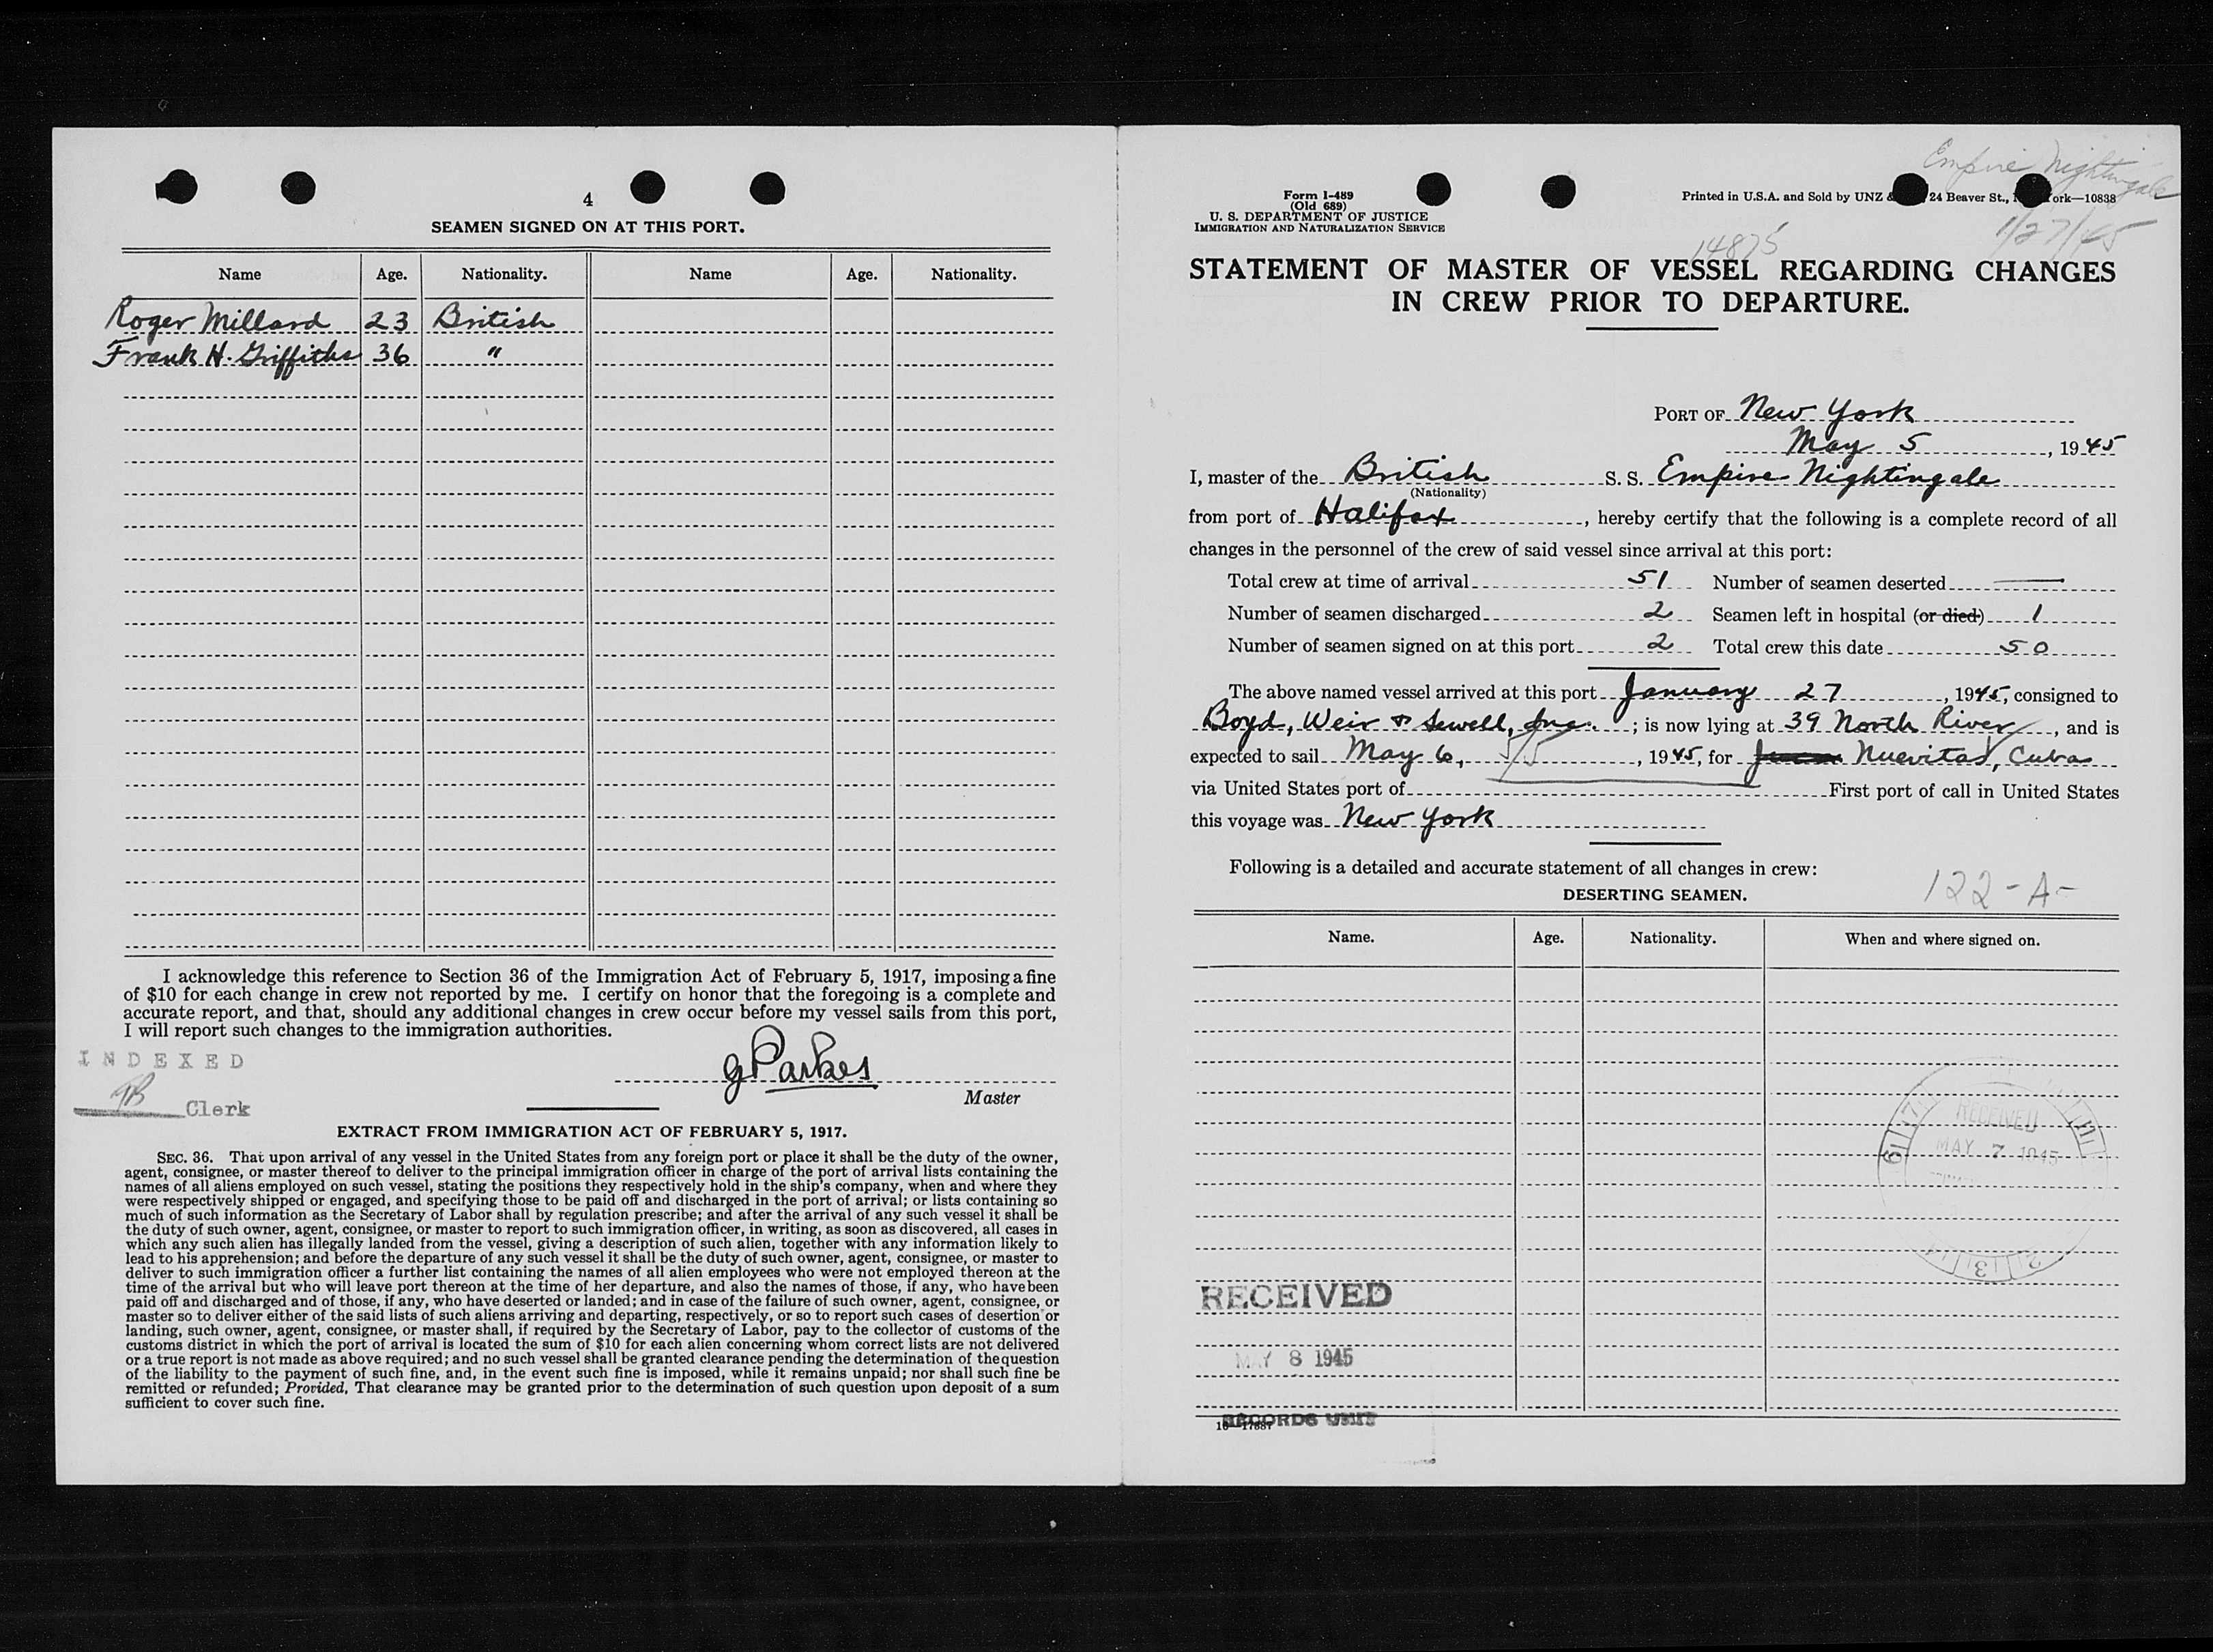 4
SEAMEN SIGNED ON AT THIS PORT.
Name Age. Nationality. Name Age. Nationality.
Roger Millard 23 British
Frank H. Griffiths 36 "
I acknowledge this reference to Section 36 of the Immigration Act of February 5, 1917, imposing a fine
of $10 for each change in crew not reported by me. I certify on honor that the foregoing is a complete and
accurate report, and that, should any additional changes in crew occur before my vessel sails from this port,
I will report such changes to the immigration authorities.
INDEXED
Clerk
G Parkes
Master
EXTRACT FROM IMMIGRATION ACT OF FEBRUARY 5, 1917.
SEC. 36. That upon arrival of any vessel in the United States from any foreign port or place it shall be the duty of the owner,
agent, consignee, or master thereof to deliver to the principal immigration officer in charge of the port of arrival lists containing the
names of all aliens employed on such vessel, stating the positions they respectively hold in the ship's company, when and where they
were respectively shipped or engaged, and specifying those to be paid off and discharged in the port of arrival; or lists containing so
much of such information as the Secretary of Labor shall by regulation prescribe; and after the arrival of any such vessel it shall be
the duty of such owner, agent, consignee, or master to report to such immigration officer, in writing, as soon as discovered, all cases in
which any such alien has illegally landed from the vessel, giving a description of such alien, together with any information likely to
lead to his apprehension; and before the departure of any such vessel it shall be the duty of such owner, agent, consignee, or master to
deliver to such immigration officer a further list containing the names of all alien employees who were not employed thereon at the
time of the arrival but who will leave port thereon at the time of her departure, and also the names of those, if any, who have been
paid off and discharged and of those, if any, who have deserted or landed; and in case of the failure of such owner, agent, consignee, or
master so to deliver either of the said lists of such aliens arriving and departing, respectively, or so to report such cases of desertion or
landing, such owner, agent, consignee, or master shall, if required by the Secretary of Labor, pay to the collector of customs of the
customs district in which the port of arrival is located the sum of $10 for each alien concerning whom correct lists are not delivered
or a true report is not made as above required; and no such vessel shall be granted clearance pending the determination of the question
of the liability to the payment of such fine, and, in the event such fine is imposed, while it remains unpaid; nor shall such fine be
remitted or refunded; Provided, That clearance may be granted prior to the determination of such question upon deposit of a sum
sufficient to cover such fine.
Empire Nightingale
1/27/45
Form I-489
(Old 689)
U. S. DEPARTMENT OF JUSTICE
IMMIGRATION AND NATURALIZATION SERVICE
Printed in U.S.A. and Sold by UNZ & 24 Beaver St., ork—10838
14875
STATEMENT OF MASTER OF VESSEL REGARDING CHANGES
IN CREW PRIOR TO DEPARTURE.
PORT OF New York
May 5, 1945
I, master of the British S. S. Empire Nightingale
(Nationality)
from port of Halifax, hereby certify that the following is a complete record of all
changes in the personnel of the crew of said vessel since arrival at this port:
Total crew at time of arrival 51 Number of seamen deserted —
Number of seamen discharged 2 Seamen left in hospital (or died) 1
Number of seamen signed on at this port 2 Total crew this date 50
The above named vessel arrived at this port January 27, 1945, consigned to
Boyd, Weir & Sewell, Inc.; is now lying at 39 North River, and is
expected to sail May 6, 5/5, 1945, for Nuevitas, Cuba
via United States port of First port of call in United States
this voyage was New York
Following is a detailed and accurate statement of all changes in crew:
122-A-
DESERTING SEAMEN.
Name. Age. Nationality. When and where signed on.
RECEIVED
MAY 7 1945
RECEIVED
MAY 8 1945
RECORDS UNIT
16—17887